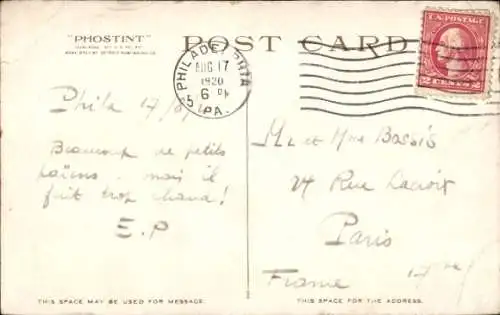 "PHOSTINT"
POST CARD
PHILADELPHIA
AUG 17
1920
6 PM
5
PA.
U.S. POSTAGE
2 CENTS 2
Phila 17/8/
Beaucoup de petits
païens - mais il
fait trop chaud!
E.P
M. et Mme
24 Rue Lacroix
Paris
France 17me
THIS SPACE MAY BE USED FOR MESSAGE.
THIS SPACE FOR THE ADDRESS.